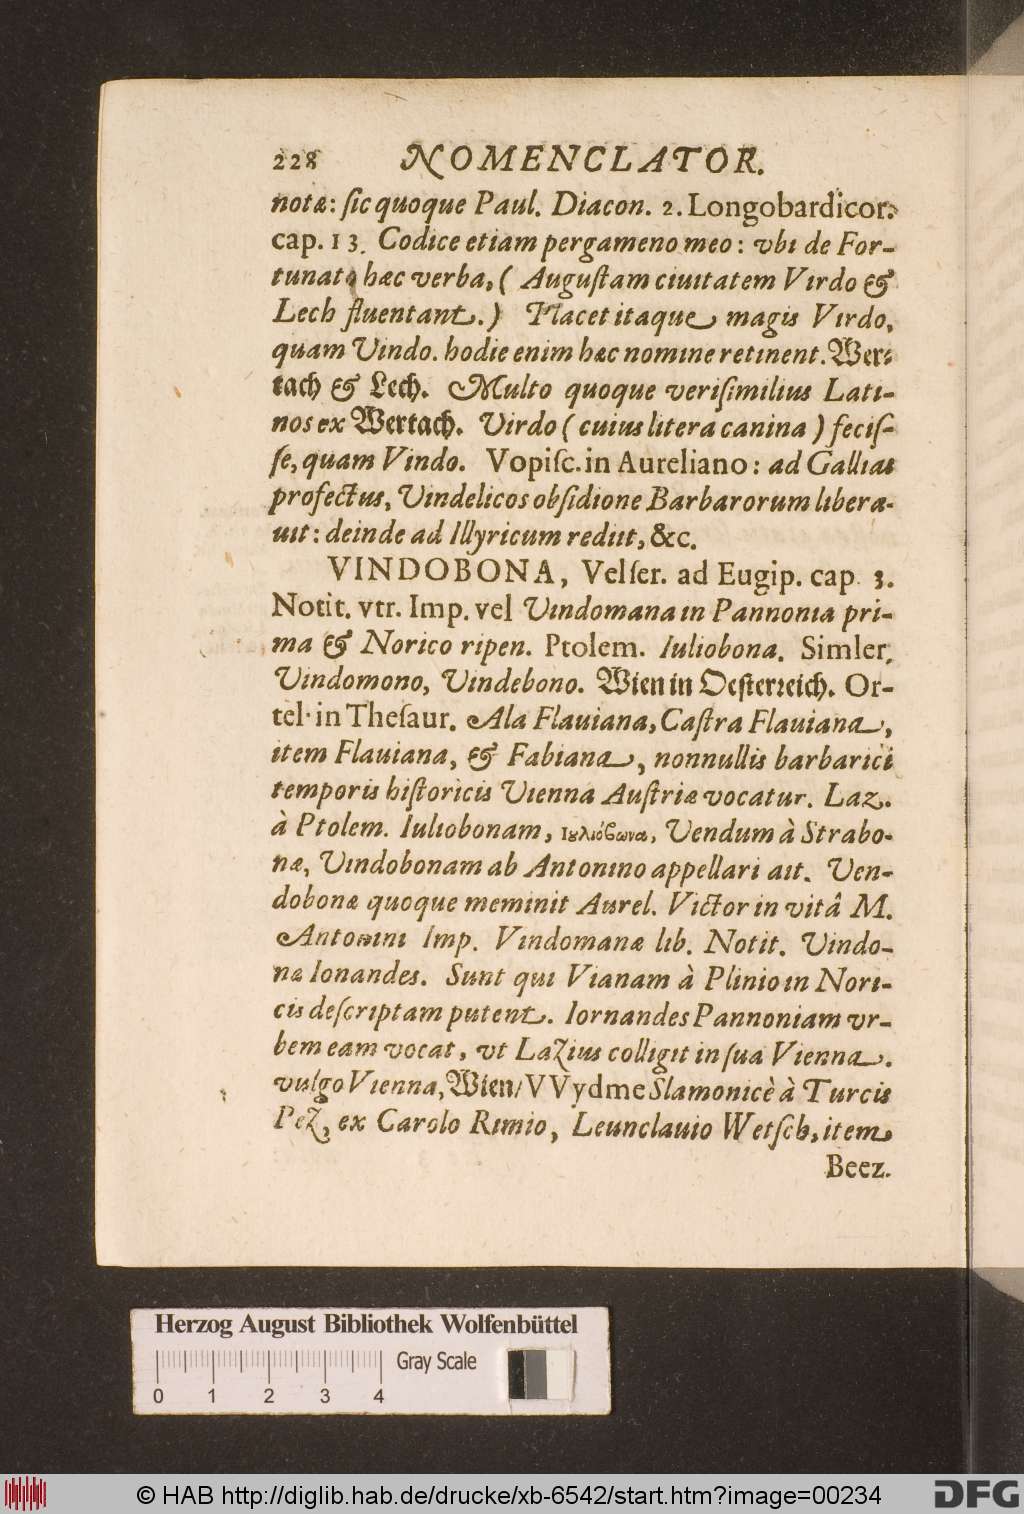 228 NOMENCLATOR.
notæ: ſic quoque Paul. Diacon. 2. Longobardicor.
cap. 13. Codice etiam pergameno meo: vbi de For-
tunato hæc verba, ( Auguſtam ciuitatem Virdo &
Lech fluentant.) Placet itaque magis Virdo,
quam Vindo. hodie enim hæc nomine retinent. Wer-
tach & Lech. Multo quoque veriſimilius Lati-
nos ex Wertach. Virdo ( cuius litera canina ) feciſ-
ſe, quam Vindo. Vopiſc. in Aureliano: ad Gallias
profectus, Vindelicos obſidione Barbarorum libera-
uit: deinde ad Illyricum rediit, &c.
VINDOBONA, Velſer. ad Eugip. cap. 3.
Notit. vtr. Imp. vel Vindomana in Pannonia pri-
ma & Norico ripen. Ptolem. Iuliobona. Simler.
Vindomono, Vindebono. Wien in Oeſterreich. Or-
tel. in Theſaur. Ala Flauiana, Caſtra Flauiana,
item Flauiana, & Fabiana, nonnullis barbarici
temporis hiſtoricis Vienna Auſtriæ vocatur. Laz.
à Ptolem. Iuliobonam, Ιουλιόβωνα, Vendum à Strabo-
næ, Vindobonam ab Antonino appellari ait. Ven-
dobonæ quoque meminit Aurel. Victor in vitâ M.
Antonini Imp. Vindomanæ lib. Notit. Vindo-
næ Ionandes. Sunt qui Vianam à Plinio in Nori-
cis deſcriptam putent. Iornandes Pannoniam vr-
bem eam vocat, vt Lazius colligit in ſua Vienna.
vulgo Vienna, Wien/ VVydme Slamonicè à Turcis
Pez, ex Carolo Rimio, Leunclauio Wetſch, item
Beez.
Herzog August Bibliothek Wolfenbüttel
Gray Scale
0 1 2 3 4
© HAB http://diglib.hab.de/drucke/xb-6542/start.htm?image=00234
DFG